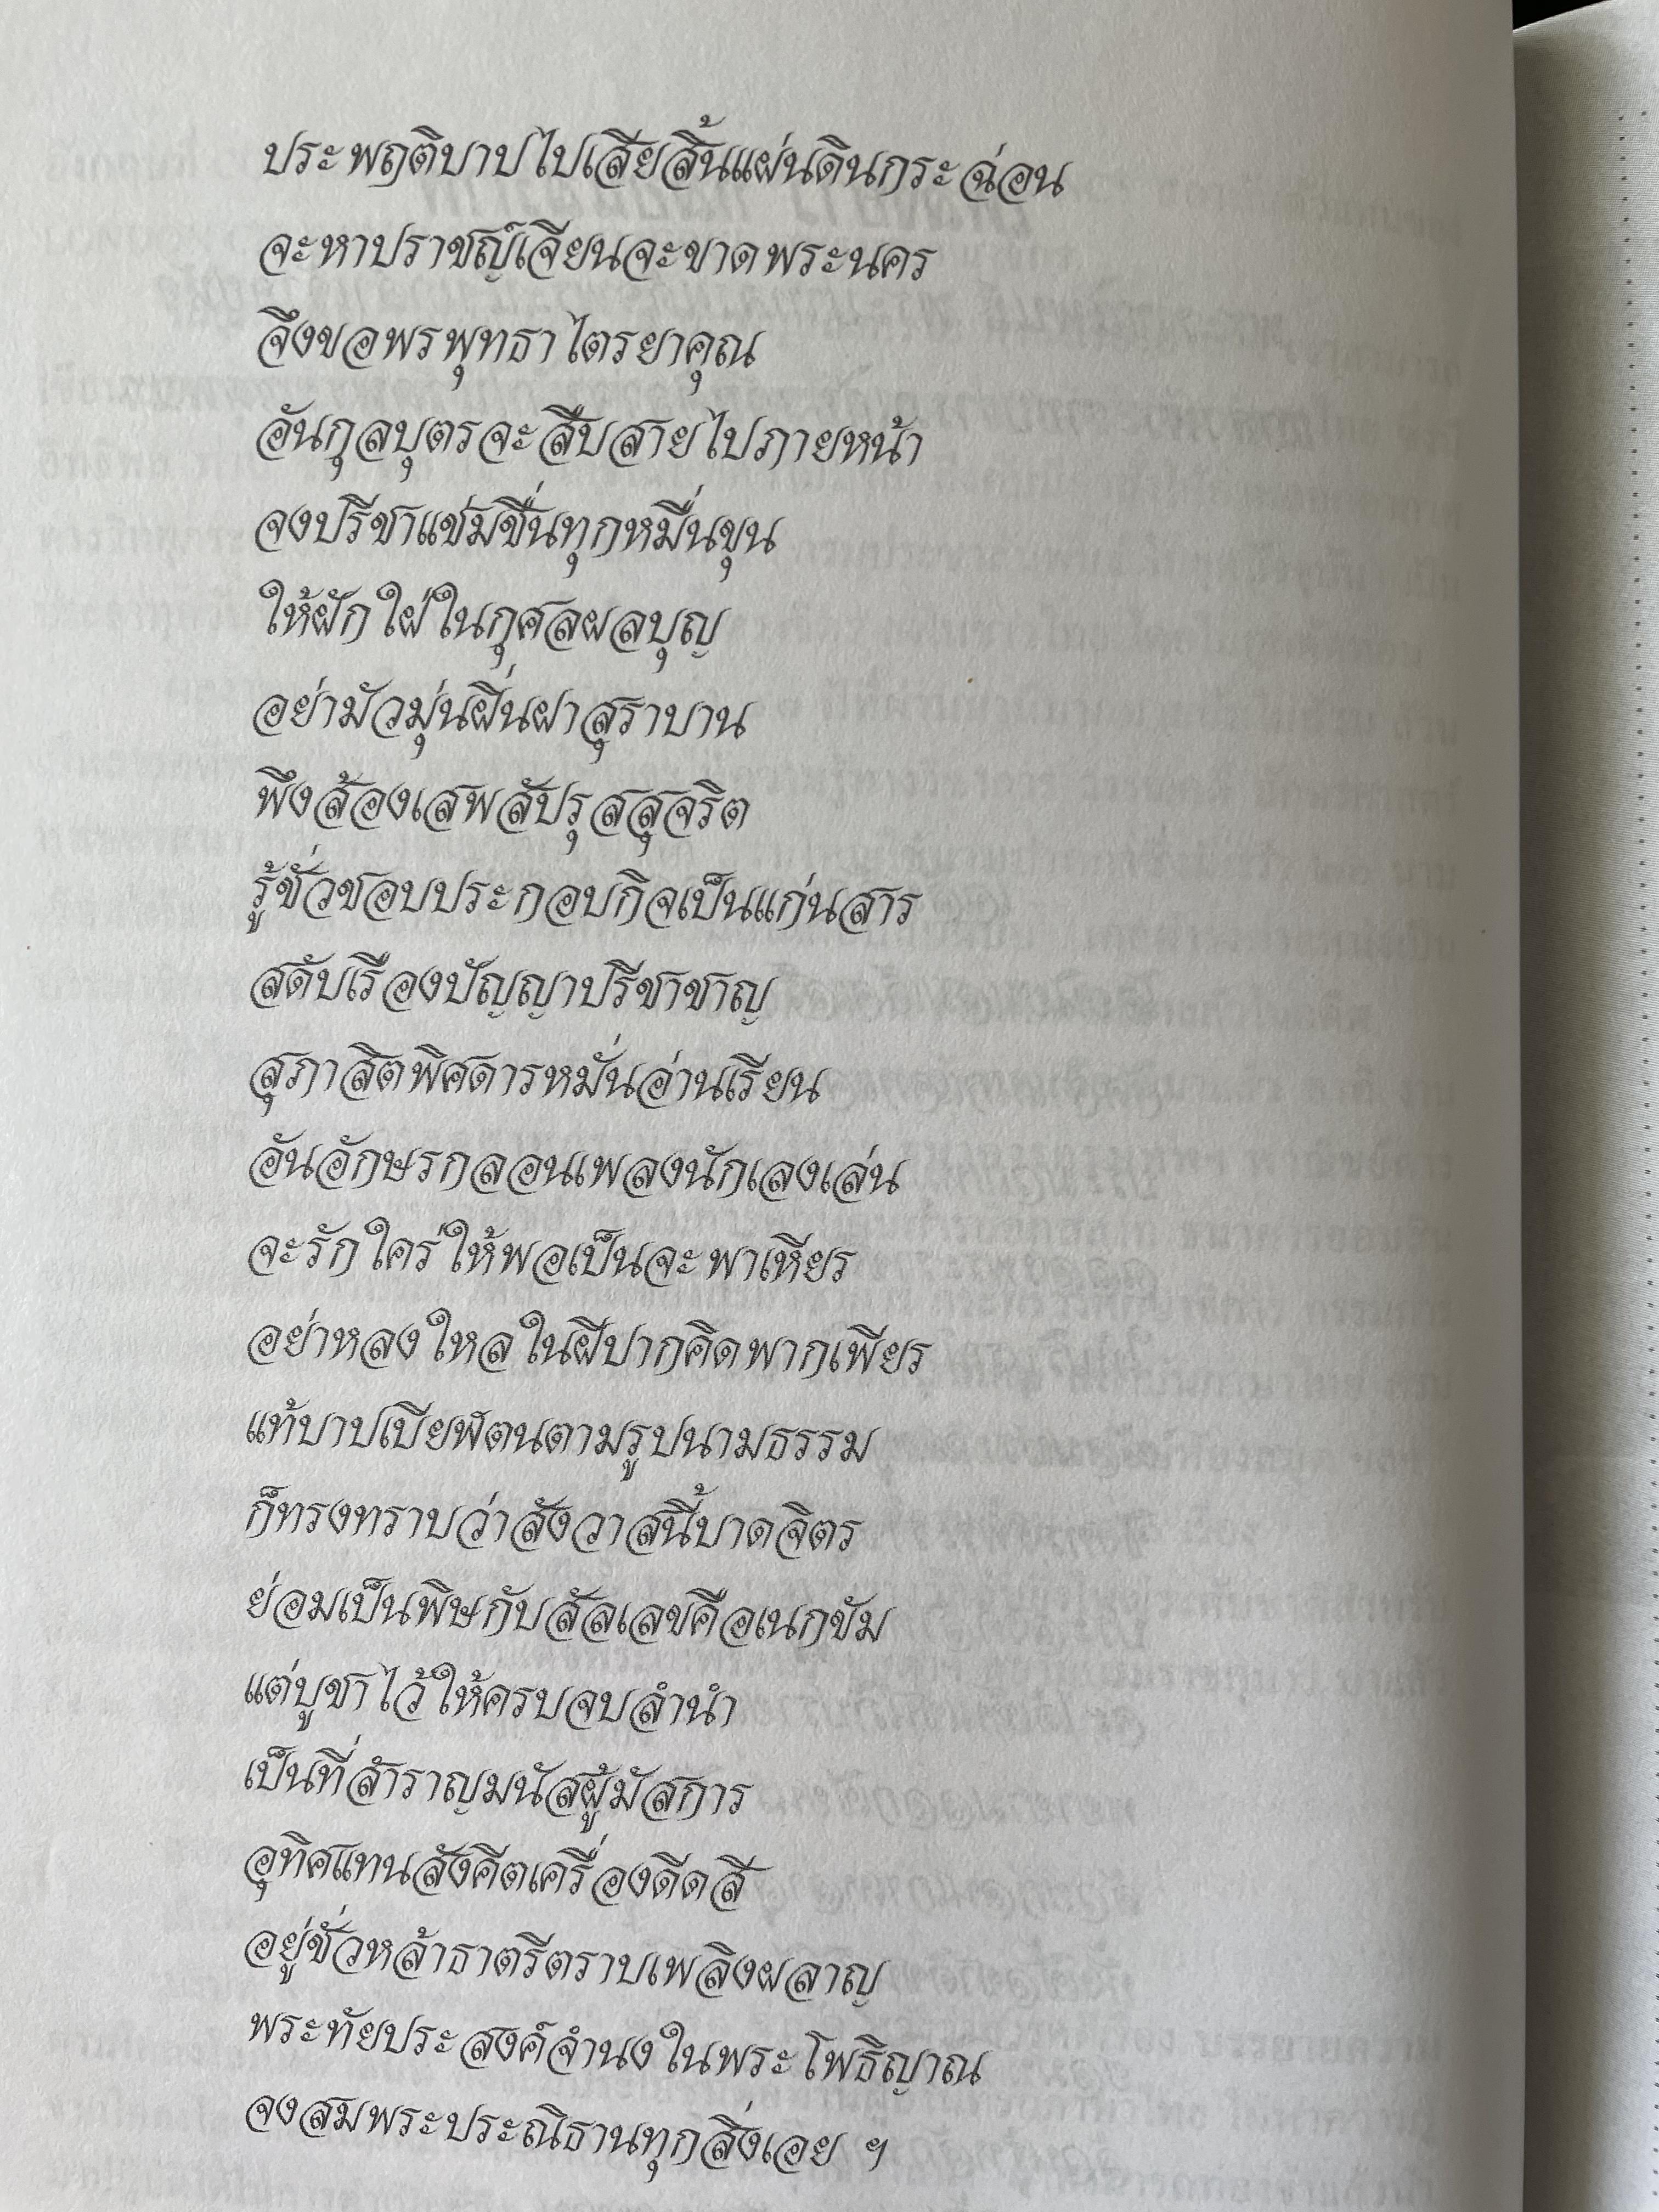 ประพฤติบาปไปเสียสิ้นแผ่นดินกระฉ่อน
จะหาปราชญ์เจียนจะขาดพระนคร
จึงขอพรพุทธาไตรยาคุณ
อันกุลบุตรจะสืบสายไปภายหน้า
จงปรีชาแช่มชื่นทุกหมื่นขุน
ให้ฝักใฝ่ในกุศลผลบุญ
อย่ามัวมุ่นฝิ่นฝาสุราบาน
พึงส้องเสพสัปรุสสุจริต
รู้ชั่วชอบประกอบกิจเป็นแก่นสาร
สดับเรื่องปัญญาปรีชาชาญ
สุภาสิตพิศดารหมั่นอ่านเรียน
อันอักษรกลอนเพลงนักเลงเล่น
จะรักใคร่ให้พอเป็นจะพาเหียร
อย่าหลงใหลในฝีปากคิดพากเพียร
แท้บาปเบียฬตนตามรูปนามธรรม
ก็ทรงทราบว่าสังวาสนี้บาดจิตร
ย่อมเป็นพิษกับสัลเลขคือเนกขัม
แต่บูชาไว้ให้ครบจบลำนำ
เป็นที่สำราญมนัสผู้มัสการ
อุทิศแทนสังคีตเครื่องดีดสี
อยู่ชั่วหล้าธาตรีตราบเพลิงผลาญ
พระทัยประสงค์จำนงในพระโพธิญาณ
จงสมพระประณิธานทุกสิ่งเอย ฯ